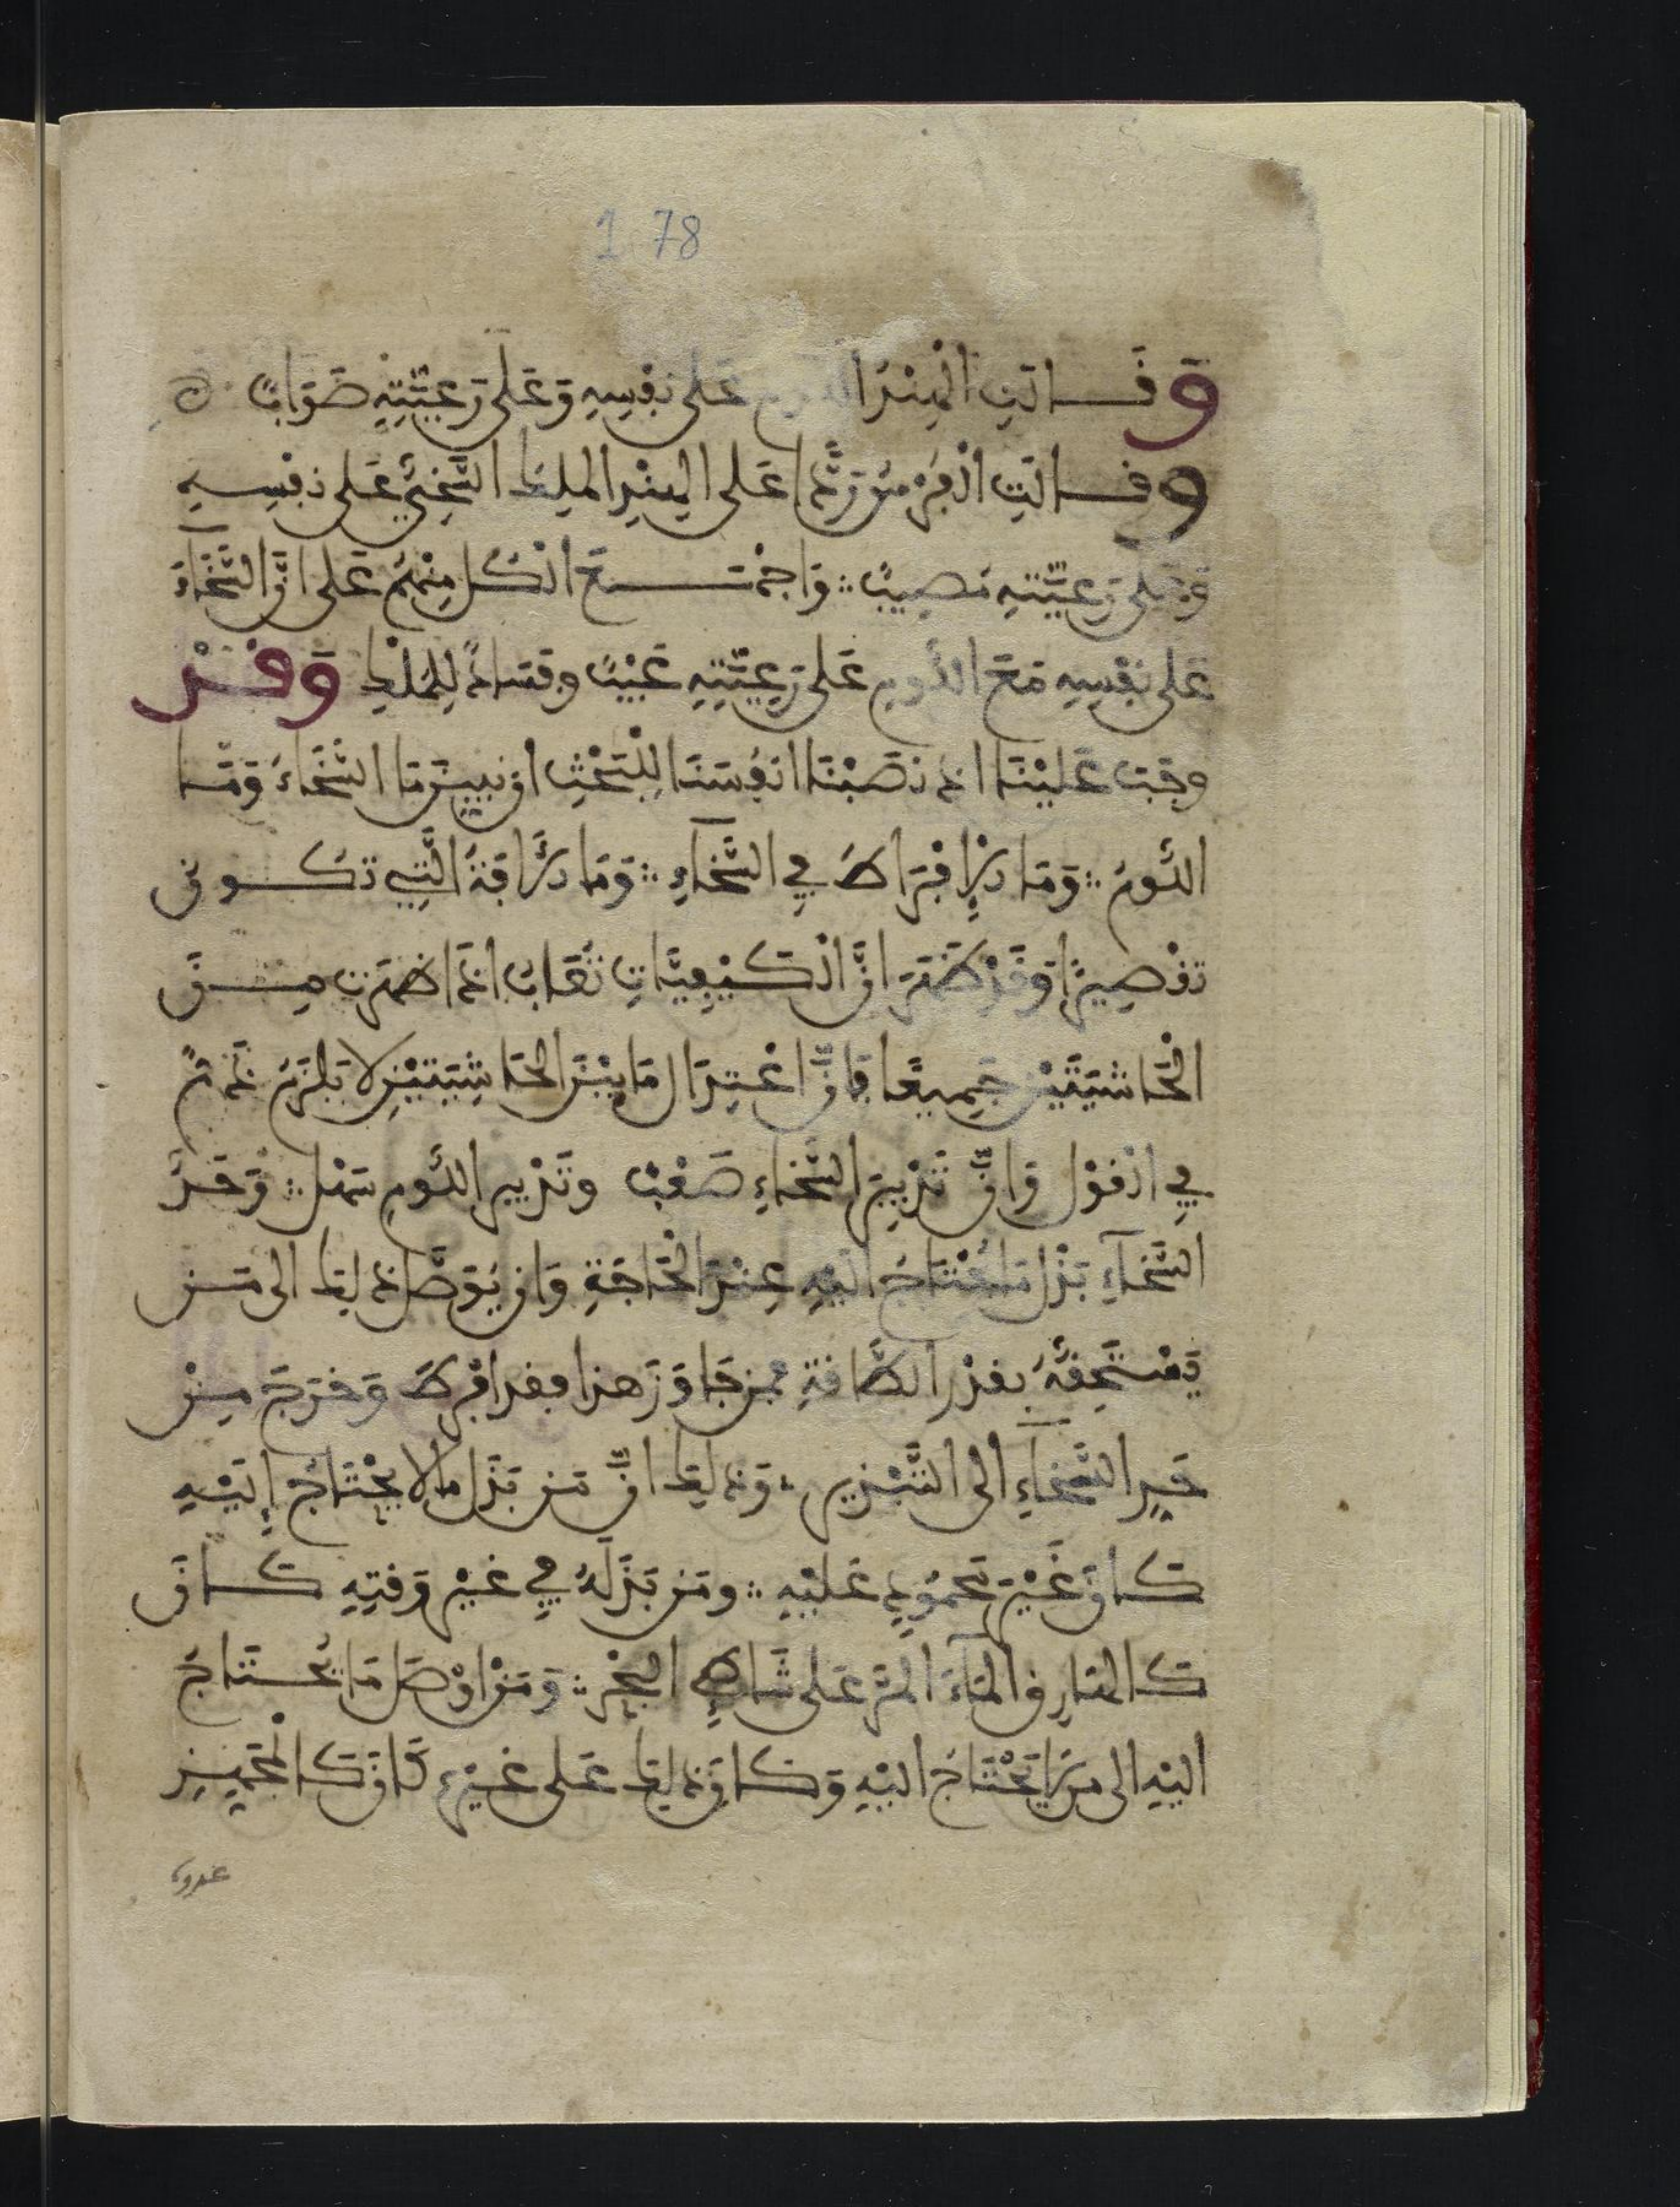 1 78
وَقَالَتِ الْهِنْدُ اللوم عَلى نَفْسِهِ وَعَلى رَعِيَّتِهِ صَوَابٌ
وقالَتِ الْفُرْسُ رَدًّا عَلى الهِنْدِ الملِكُ السَّخِيُّ عَلى نَفْسِهِ
وَعَلى رَعِيَّتِهِ مُصِيبٌ ∴ وَاجْتَمَعَ الْكُل مِنْهُمْ عَلى انَّ السَّخَآءَ
عَلى نَفْسِهِ مَعَ اللُّومِ عَلى رَعِيَّتِهِ عَيْبٌ وفَسَادٌ لِلمُلْكِ وَقَدْ
وجَبَ عَليْنَا اذ نَصَبْنَا انفُسَنَا لِلْبَحْثِ ان نبيِّنَ مَا السَّخَاءُ وَمَا
اللُّومُ ∴ وَمَا رَدُّ إفْرَاطِ فِي السَّخَآءِ ∴ وَمَا رَدُّ افَةِ الَّتِي تَكُون
تقْصِيرًا وَقَدْ ظَهَرَ انَّ الْكَيْفِيَّاتِ تُعَابُ اذَا ظَهَرَت مِنَ
الْحَاشِيَتَيْنِ جَمِيعًا فانَّ اعْتِدَال مَا بيْنَ الحَاشِيَتَيْنِ لا يَلزَمُ ذَمٌّ
فِي الْقَوْل وَانَّ تَدْبِيرَ السَّخَاءِ صَعْبٌ وتَدْبِير اللُّومِ سَهْل ∴ وَحَدُّ
السَّخَآءِ بَذْل مَا يُحْتَاجُ اليْهِ عِنْدَ الْحَاجَةِ وَان يُوَصَّلَ ذلِكَ الى مَن
يَسْتَحِقُّهُ بقدْرِ الطَّاقةِ فمَن جَاوَزَ هذا فقد افْرَطَ وَخرَجَ مِنْ
حَدِّ السَّخَآءِ الى التَّبْذِيرِ ∴ وَذلِكَ انَّ مَن بَذَل مالا يحْتَاجُ إِلَيْهِ
كَانَ غَيْرَ مَحْمُودٍ عَلَيْهِ ∴ ومَن بَذَلَهُ فِي غيْرِ وَقتِهِ كَانَ
كَالهَارِق الْمَآءَ الْمُرَّ عَلى شَاطِئِ البَحْرِ ∴ وَمَنْ اوْصَل مَا يُحتَاجُ
اليْهِ الى مَن لَا يَحْتَاجُ اليْهِ وَكَانَ ذلِكَ عَلى غيْرِهِ كَانَ كَالْمُجَهِّزِ
عدوه